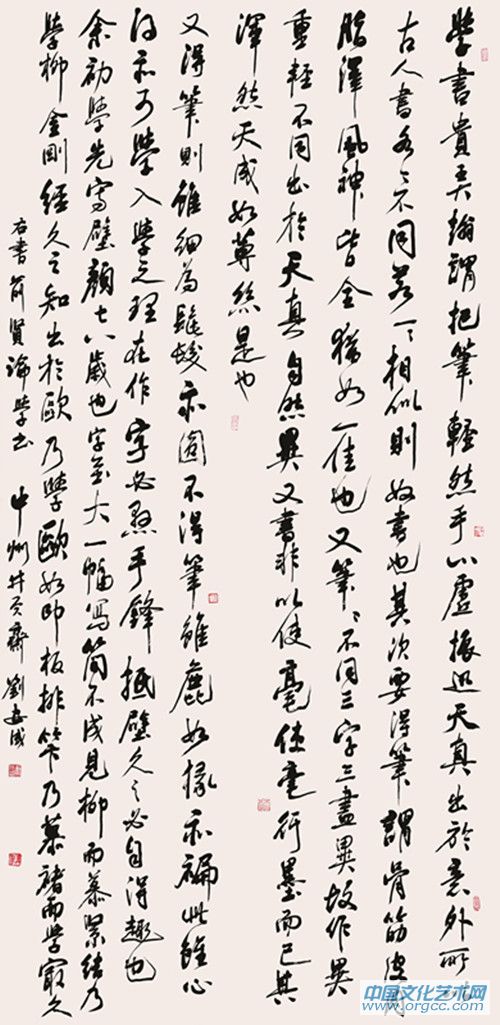 學書貴弄翰謂把筆輕然手心虛振迅天真出於意外所
古人書各々不同若一々相似則奴書也其次要得筆謂骨筋皮肉
脂澤風神皆全猶如一佳也又筆々不同三字三畫異故作異
重輕不同出於天真自然異又書非以使毫使毫行墨而已其
渾然天成如蓴絲是也
又得筆則雖細為髭髮亦圓不得筆雖麤如椽亦褊此雖心
得亦可學入學之理在作字必懸手鋒抵壁久之必自得趣也
余初學先寫壁顏七八歲也字至大一幅寫簡不成見柳而慕緊結乃
學柳金剛經久之知出於歐乃學歐如印板排筭乃慕褚而學最久
右書前賢論學書 中州 齋劉 成
中国文化艺术网
www.orgcc.com